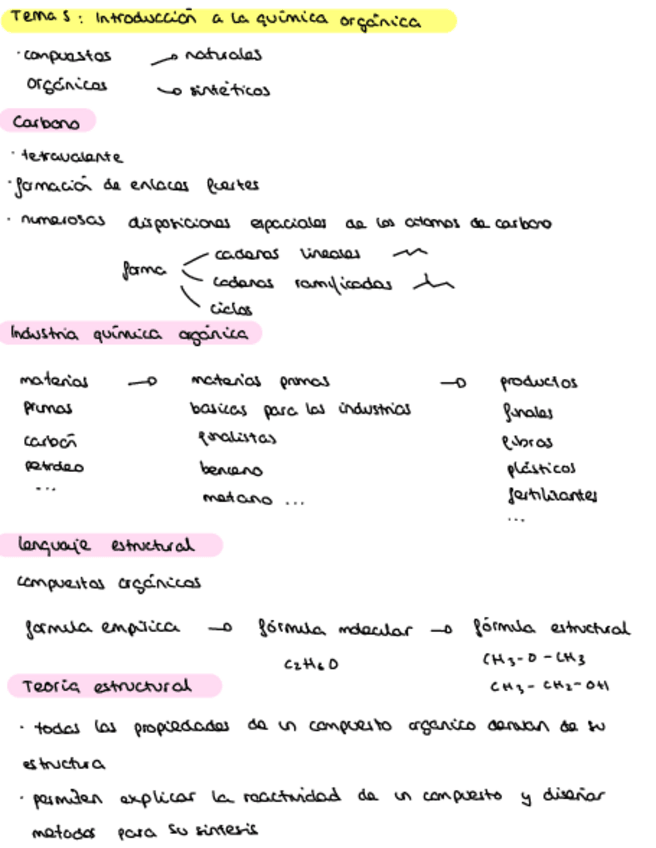 Tema 5: Introducción a la química orgánica
· compuestos → naturales
orgánicos → sintéticos
Carbono
· tetravalente
· formación de enlaces fuertes
· numerosas disposiciones espaciales de los átomos de carbono
cadenas lineales
forma
cadenas ramificadas
ciclos
Industria química orgánica
materias → materias primas → productos
primas basicas para las industrias finales
carbón finalistas fibras
petróleo benceno plásticos
... metano ... fertilizantes
...
lenguaje estructural
compuestos orgánicos
formula empírica → fórmula molecular → fórmula estructural
C2H6O CH3-O-CH3
CH3-CH2-OH
Teoría estructural
· todas las propiedades de un compuesto orgánico derivan de su
estructura
· permiten explicar la reactividad de un compuesto y diseñar
metodos para su síntesis